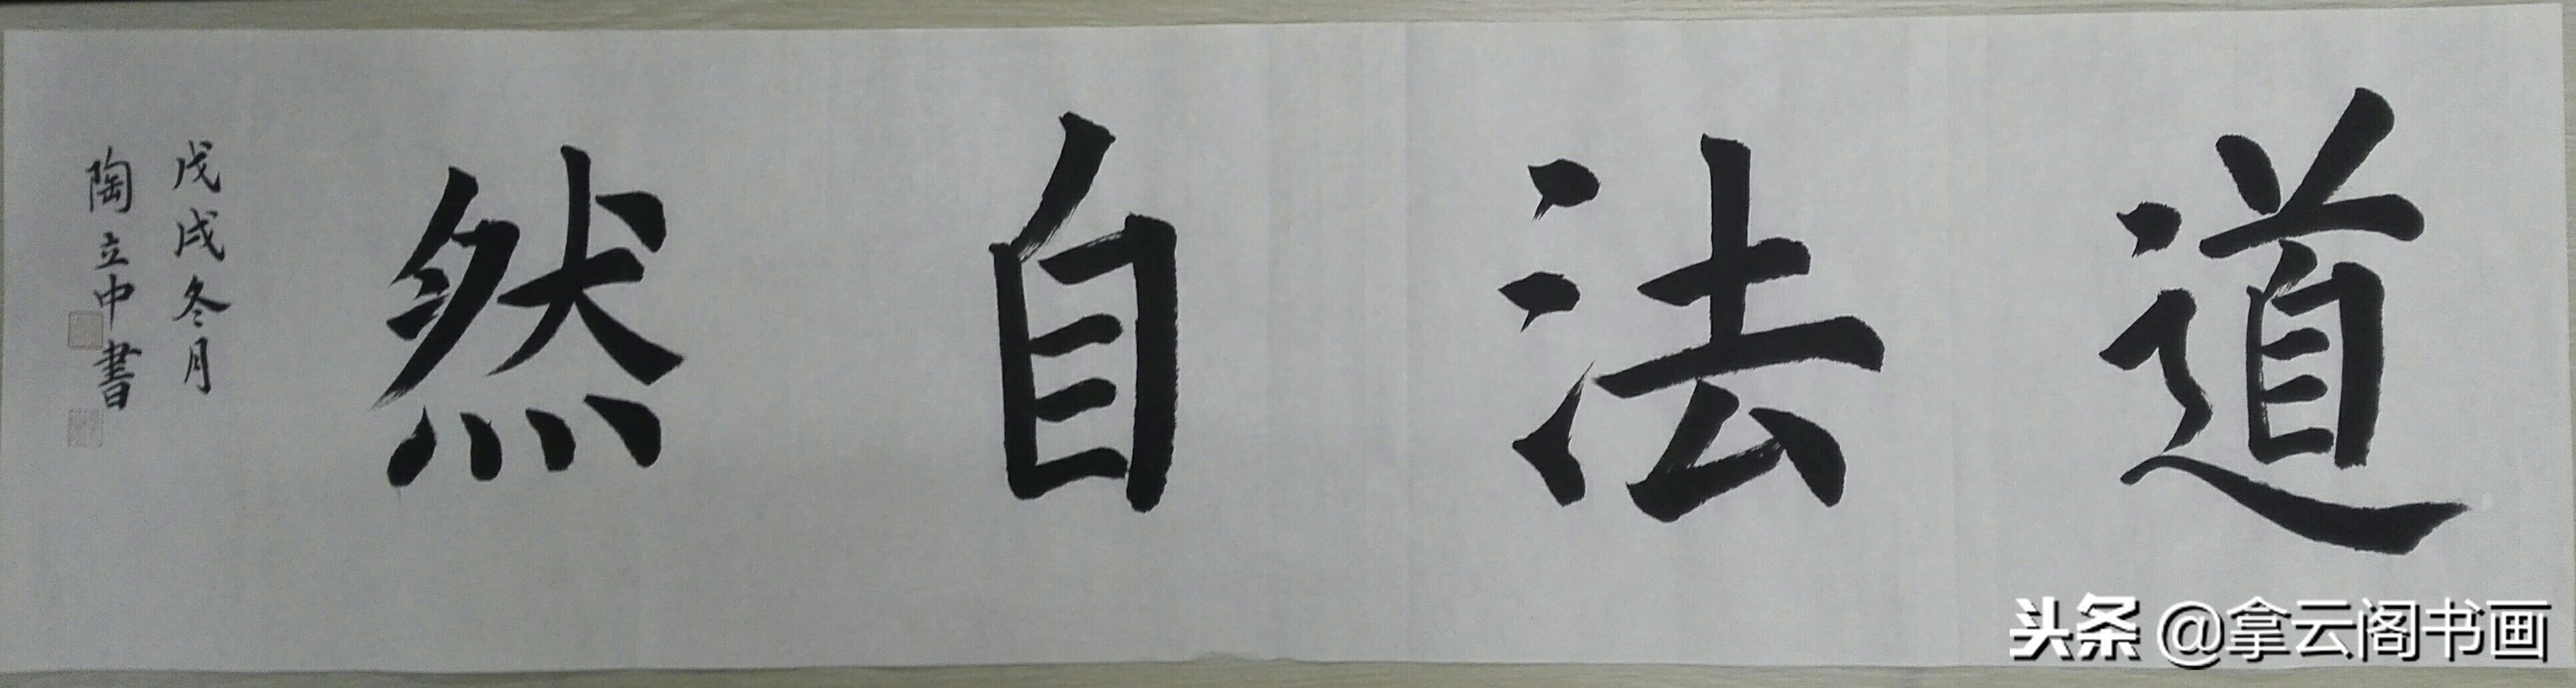 道法自然
戊戌冬月
陶立中書
头条 @拿云阁书画